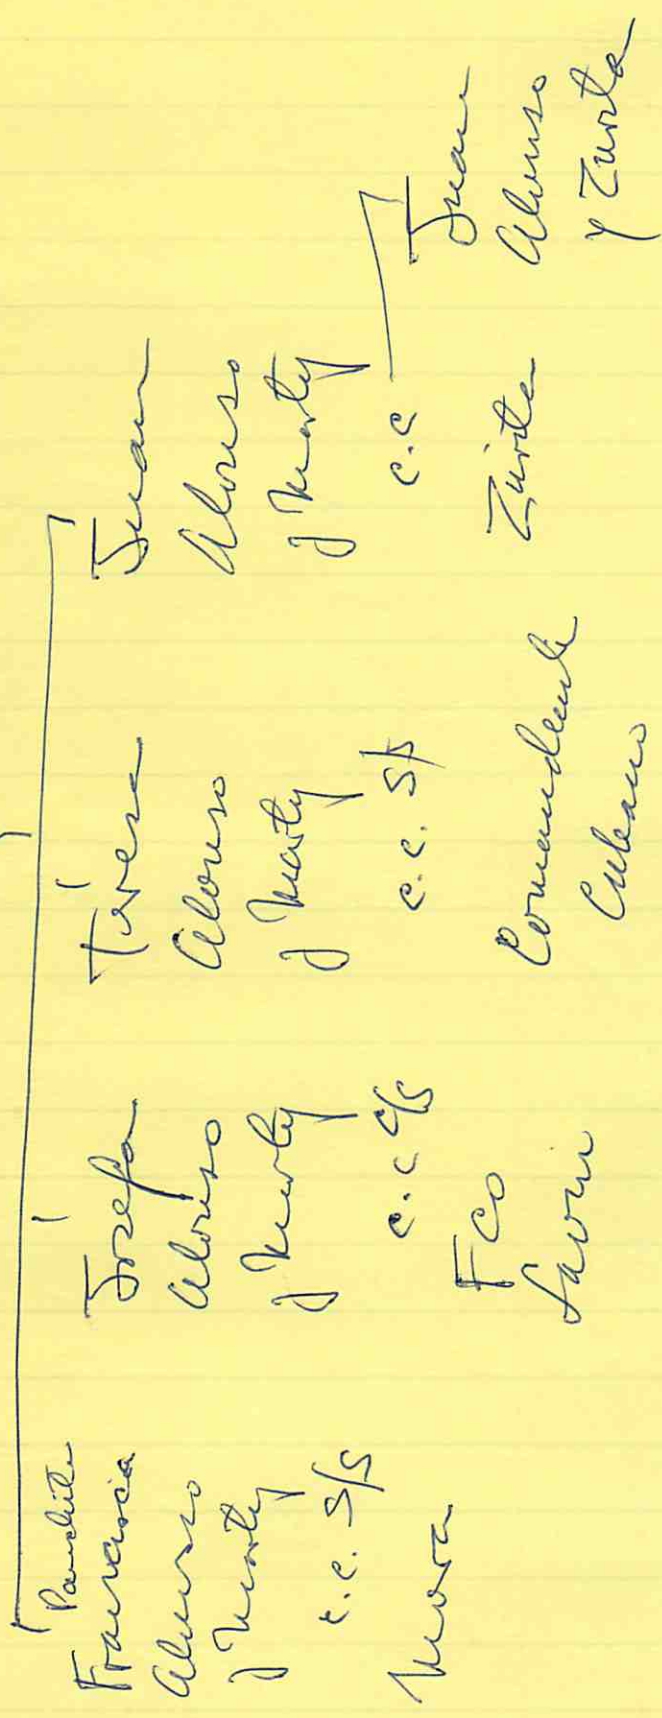 Panchita
Francisca
Alonso
y Marty
c.c. S/S
Mora
Josefa
Alonso
y Marty
c.c C/S
Fco
Savin
Teresa
Alonso
y Marty
c.c. S/S
Comandante
Cubano
Juan
Alonso
y Marty
c.c
Zurita
Juan
Alonso
y Zurita